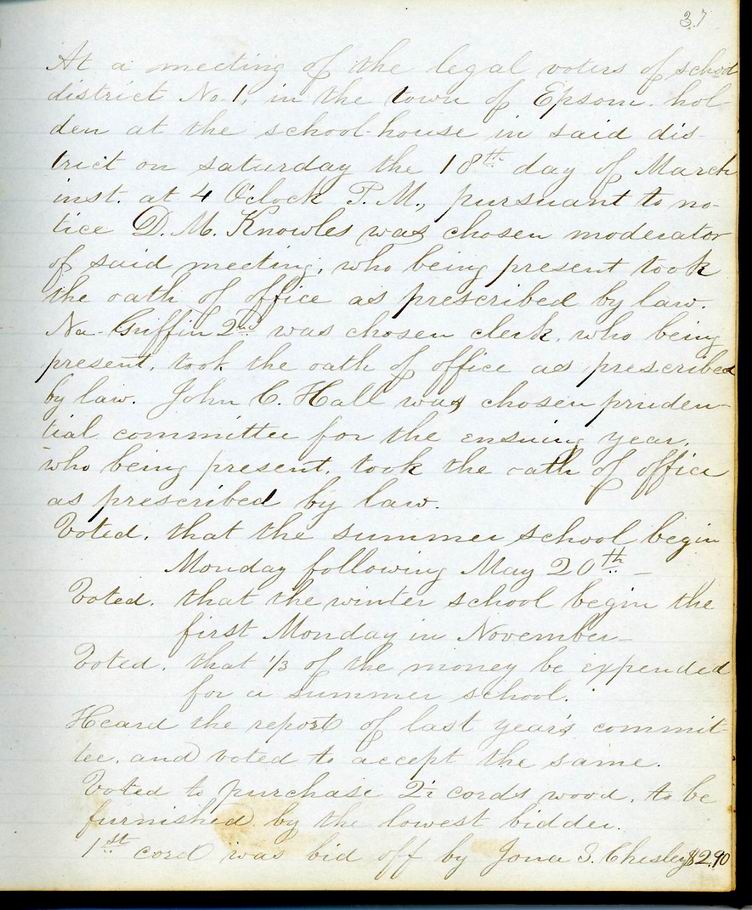 37
At a meeting of the legal voters of school
district No. 1, in the town of Epsom. hol-
den at the school-house in said dis-
trict on saturday the 18th day of March
inst. at 4 O'clock P.M., pursuant to no-
tice D. M. Knowles was chosen moderator
of said meeting, who being present took
the oath of office as prescribed by law.
Griffin 2nd was chosen clerk. who being
present, took the oath of office as prescribed
by law. John C. Hall was chosen pruden-
tial committee for the ensuing year,
who being present, took the oath of office
as prescribed by law.
Voted. that the summer school begin
Monday following May 20th
Voted. that the winter school begin the
first Monday in November
Voted. that 1/3 of the money be expended
for a summer school.
Heard the report of last year's commit-
tee, and voted to accept the same.
Voted to purchase cords wood, to be
furnished by the lowest bidder.
1st cord was bid off by Jona S. Chesley $2.90